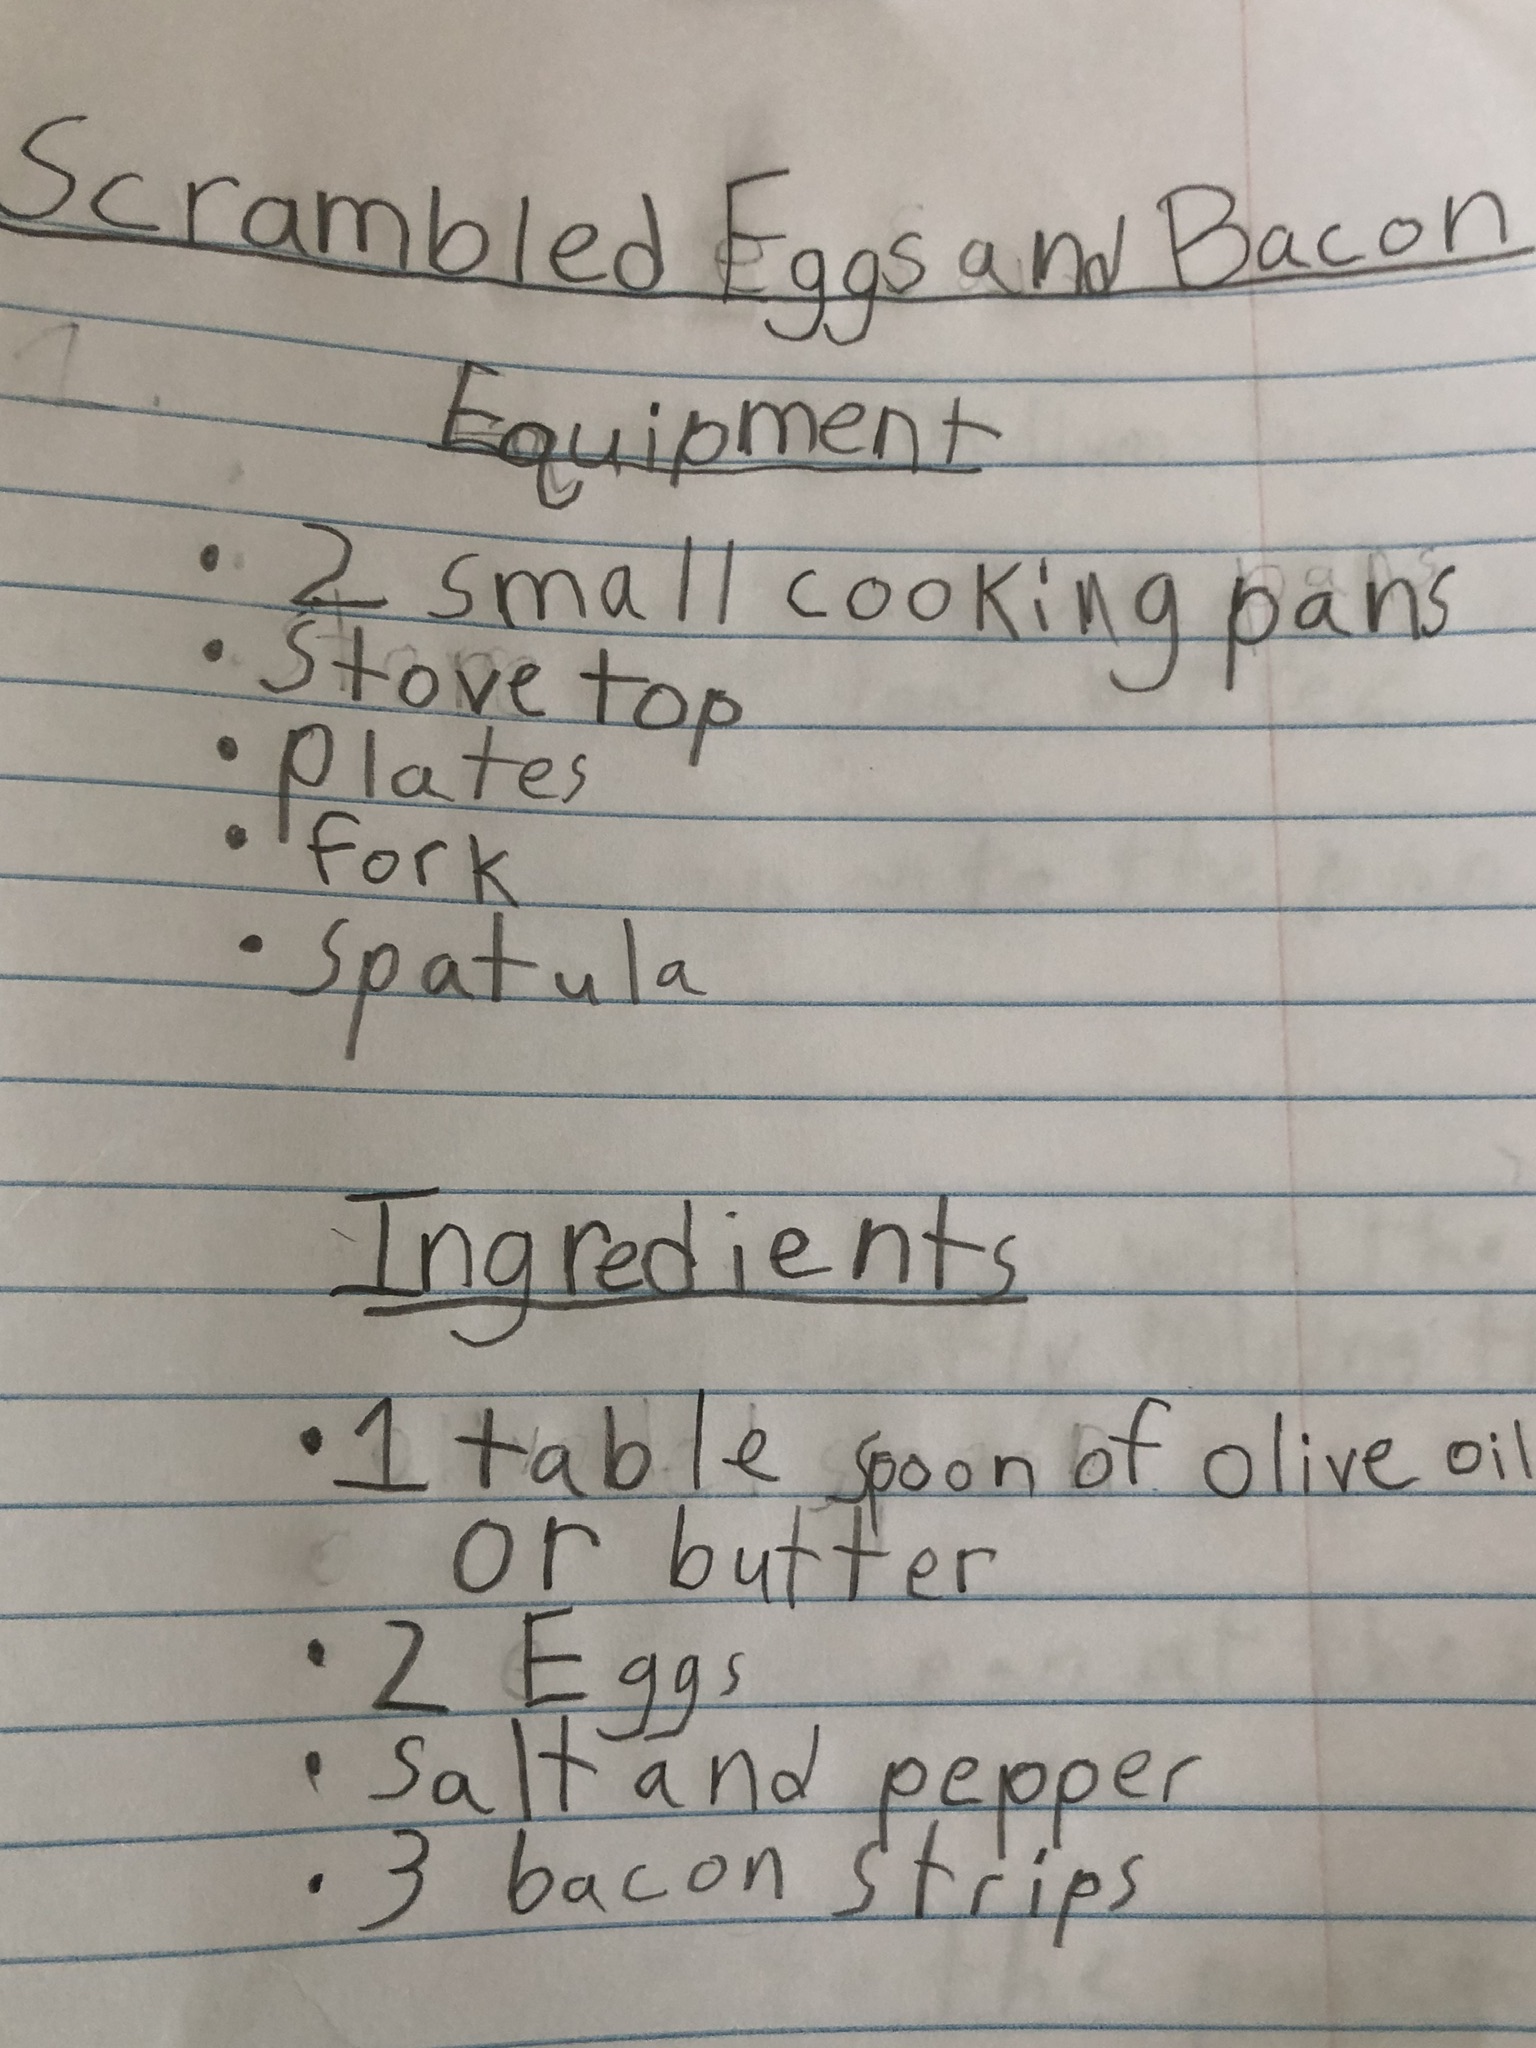 Scrambled Eggs and Bacon
Equipment
• 2 small cooking pans
• stove top
• plates
• fork
• spatula
Ingredients
• 1 table spoon of olive oil
or butter
• 2 Eggs
• salt and pepper
• 3 bacon strips